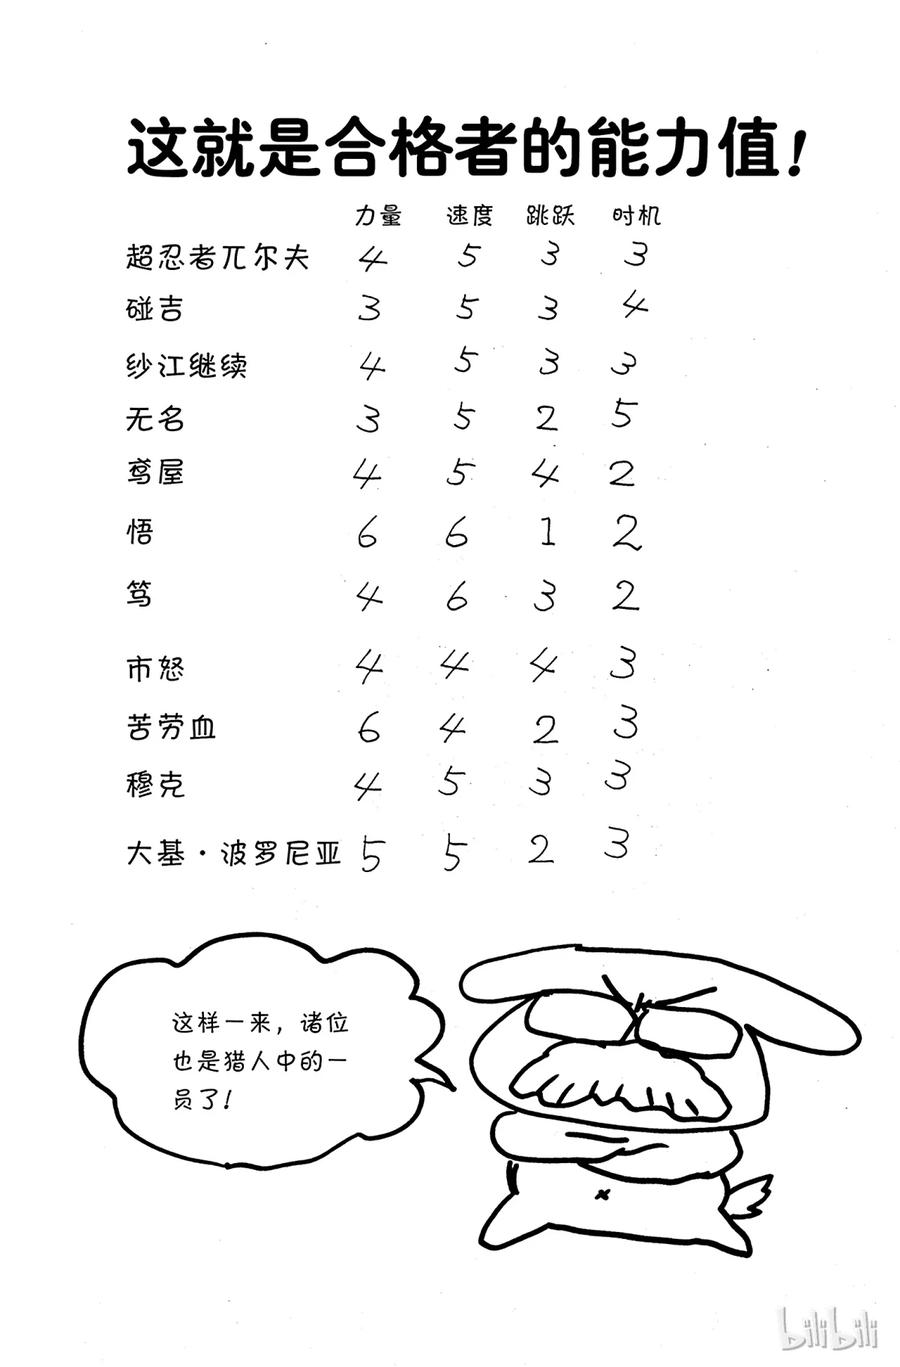 这就是合格者的能力值!
力量 速度 跳跃 时机
超忍者兀尔夫 4 5 3 3
碰吉 3 5 3 4
纱江继续 4 5 3 3
无名 3 5 2 5
鸢屋 4 5 4 2
悟 6 6 1 2
笃 4 6 3 2
市怒 4 4 4 3
苦劳血 6 4 2 3
穆克 4 5 3 3
大基·波罗尼亚 5 5 2 3
这样一来，诸位
也是猎人中的一
员了!
bilibili